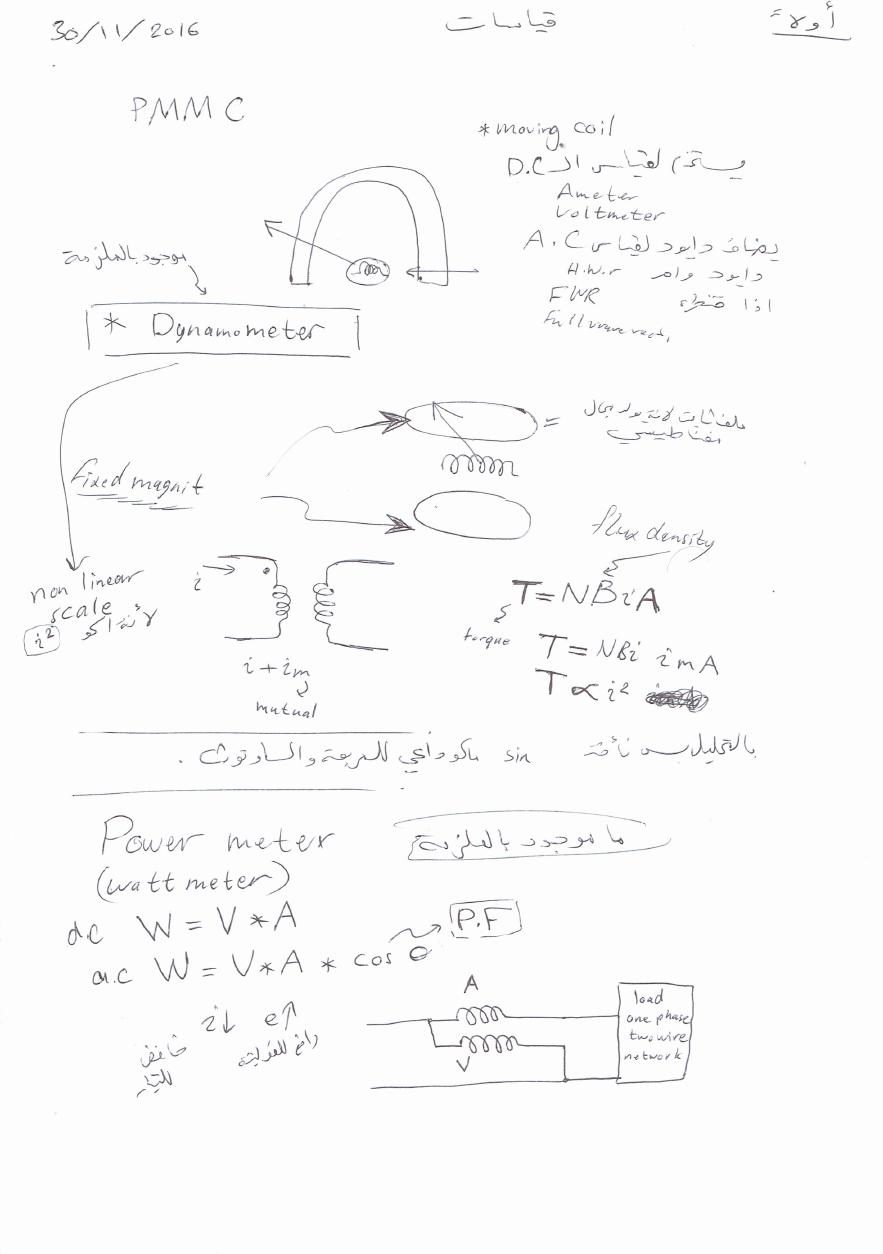 أولاً
قياسات
30/11/2016
PMMC
* moving coil
يستخدم لقياس الـ D.C
Ameter
Voltmeter
يضاف دايود لقياس A.C
دايود وام H.W.r
اذا قنطره FWR
Full wave rect,
موجود بالملزمة
* Dynamometer
ملف ثابت لانه يولد مجال
مغناطيسي =
fixed magnit
flux density
non linear
scale
لأنه اكو i²
i
i + im
mutual
T = NBiA
torque
T = NBi imA
T ∝ i²
بالتحليل بس نأخذ sin ماكو داعي للمربعة والساوتوث .
Power meter
ما موجود بالملزمة
(watt meter)
d.c W = V * A
a.c W = V * A * cos θ
P.F
i↓ e↑
خافض
للتيار
رافع للفولتية
A
V
load
one phase
two wire
network